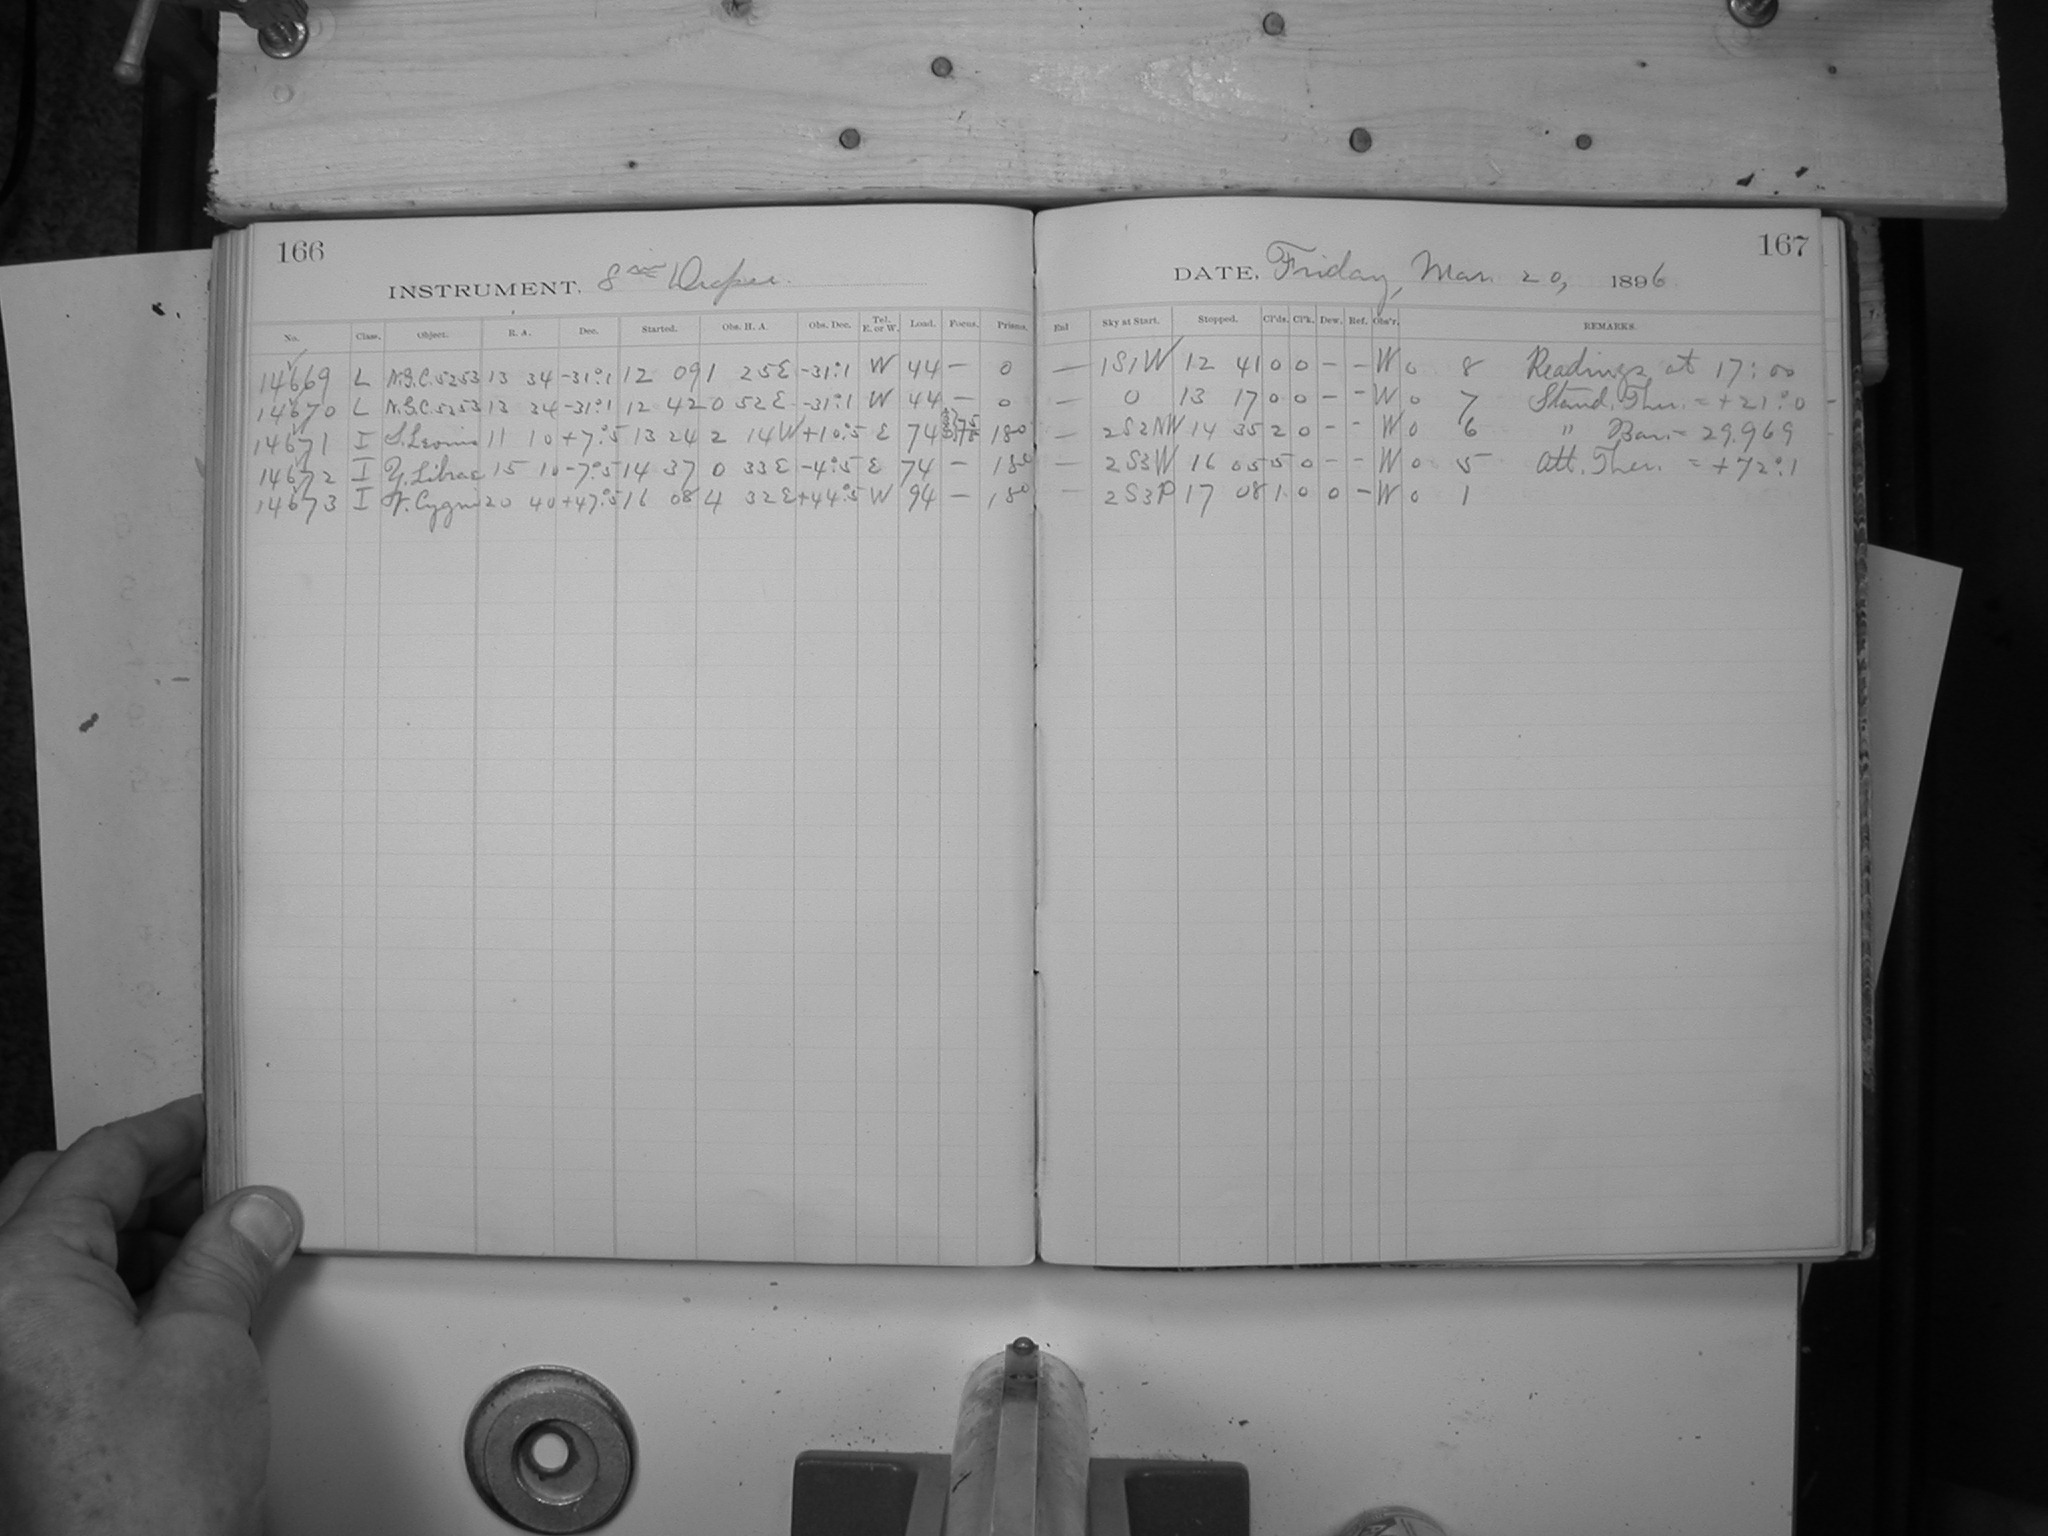 166
INSTRUMENT. 8 in Draper.
No. Class. Object. R. A. Dec. Started. Obs. H. A. Obs. Dec. Tel. E. or W. Load. Focus. Prisms.
14669 L N.G.C. 5253 13 34 -31°.1 12 09 1 25 E -31°.1 W 44 — 0
14670 L N.G.C. 5253 13 34 -31°.1 12 42 0 52 E -31°.1 W 44 — 0
14671 I S. Leonis 11 10 +7°.5 13 24 2 14 W +10°.5 E 74 18°
14672 I Y. Librae 15 10 -7°.5 14 37 0 33 E -4°.5 E 74 — 18°
14673 I V. Cygni 20 40 +47°.5 16 08 4 32 E +44°.5 W 94 — 18°
167
DATE. Friday, Mar. 20, 1896
Enl Sky at Start. Stopped. Cl'ds. Cl'k. Dew. Ref. Obs'r. REMARKS.
— 1S1W 12 41 0 0 - - W 0 8 Readings at 17:00
— 0 13 17 0 0 - - W 0 7 Stand. Ther. = +21°.0
— 2S2NW 14 35 2 0 - - W 0 6 " Bar. = 29.969
— 2S3W 16 05 5 0 - - W 0 5 Att. Ther. = +72°.1
— 2S3P 17 08 1 0 0 - W 0 1